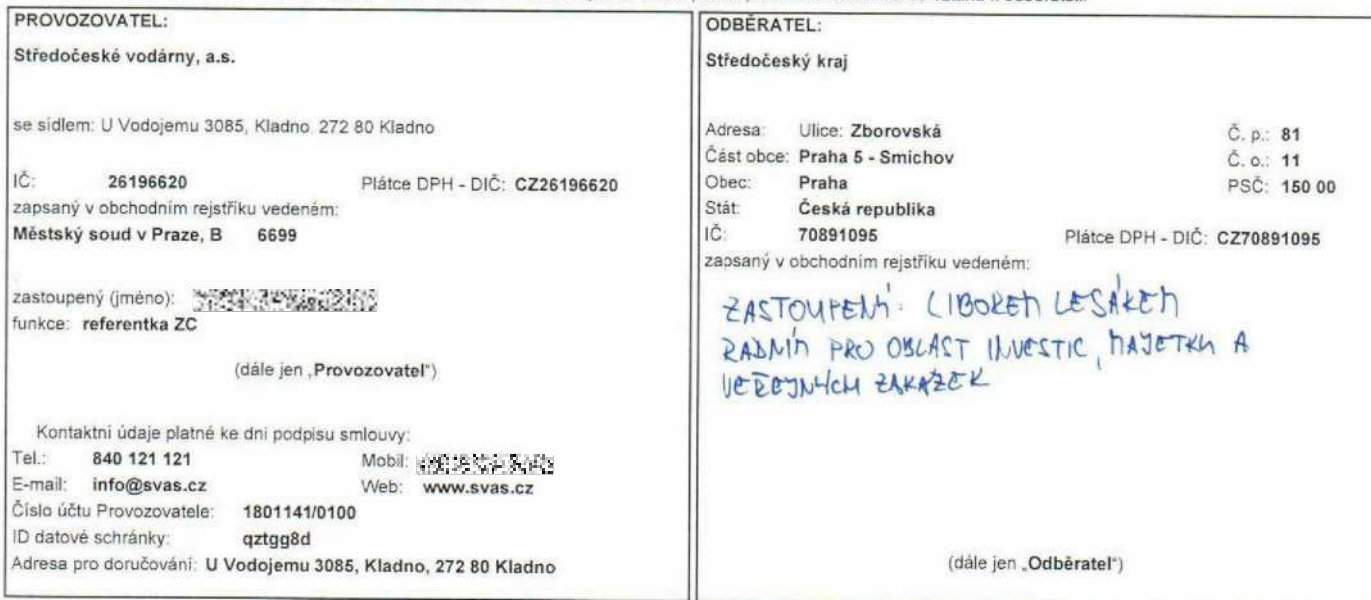 PROVOZOVATEL:
Středočeské vodárny, a.s.
se sídlem: U Vodojemu 3085, Kladno, 272 80 Kladno
IČ: 26196620 Plátce DPH - DIČ: CZ26196620
zapsaný v obchodním rejstříku vedeném:
Městský soud v Praze, B 6699
zastoupený (jméno):
funkce: referentka ZC
(dále jen „Provozovatel“)
Kontaktní údaje platné ke dni podpisu smlouvy:
Tel.: 840 121 121 Mobil:
E-mail: info@svas.cz Web: www.svas.cz
Číslo účtu Provozovatele: 1801141/0100
ID datové schránky: qztgg8d
Adresa pro doručování: U Vodojemu 3085, Kladno, 272 80 Kladno
ODBĚRATEL:
Středočeský kraj
Adresa: Ulice: Zborovská Č. p.: 81
Část obce: Praha 5 - Smíchov Č. o.: 11
Obec: Praha PSČ: 150 00
Stát: Česká republika
IČ: 70891095 Plátce DPH - DIČ: CZ70891095
zapsaný v obchodním rejstříku vedeném:
ZASTOUPENÝ: LIBOREM LESÁKEM
RADNÍM PRO OBLAST INVESTIC, MAJETKU A
VEŘEJNÝCH ZAKÁZEK
(dále jen „Odběratel“)